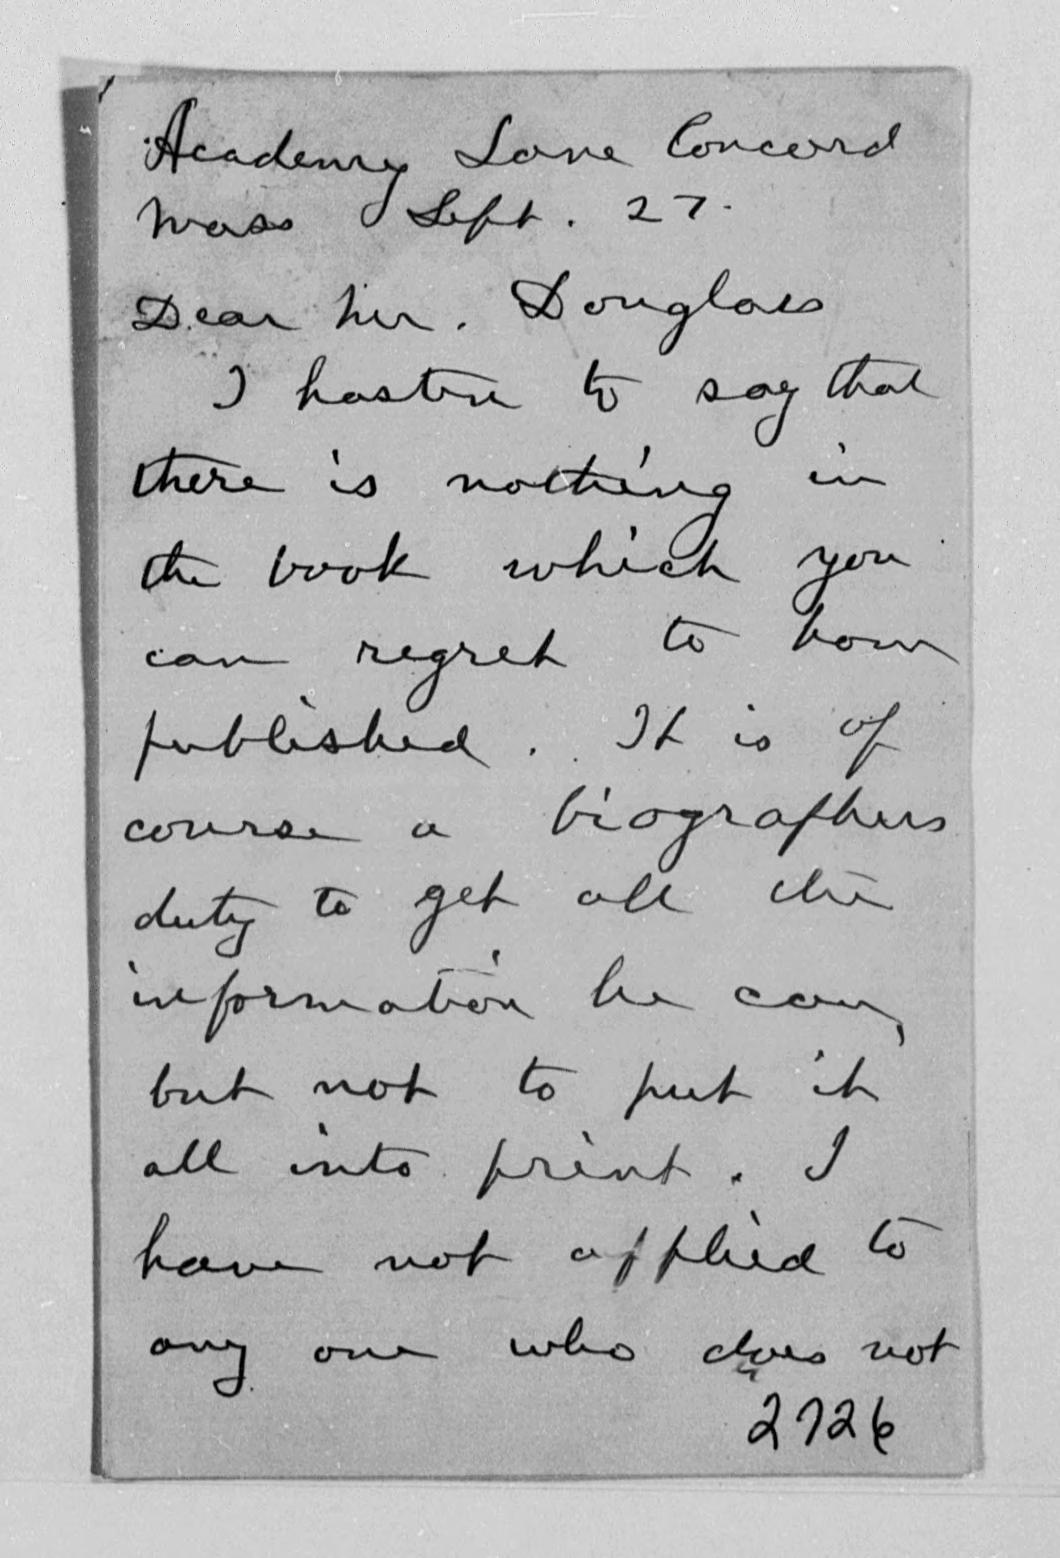 Academy Lane Concord
Mass Sept. 27.
Dear Mr. Douglass
I hasten to say that
there is nothing in
the book which you
can regret to have
published. It is of
course a biographers
duty to get all the
information he can,
but not to put it
all into print. I
have not applied to
any one who does not
2726